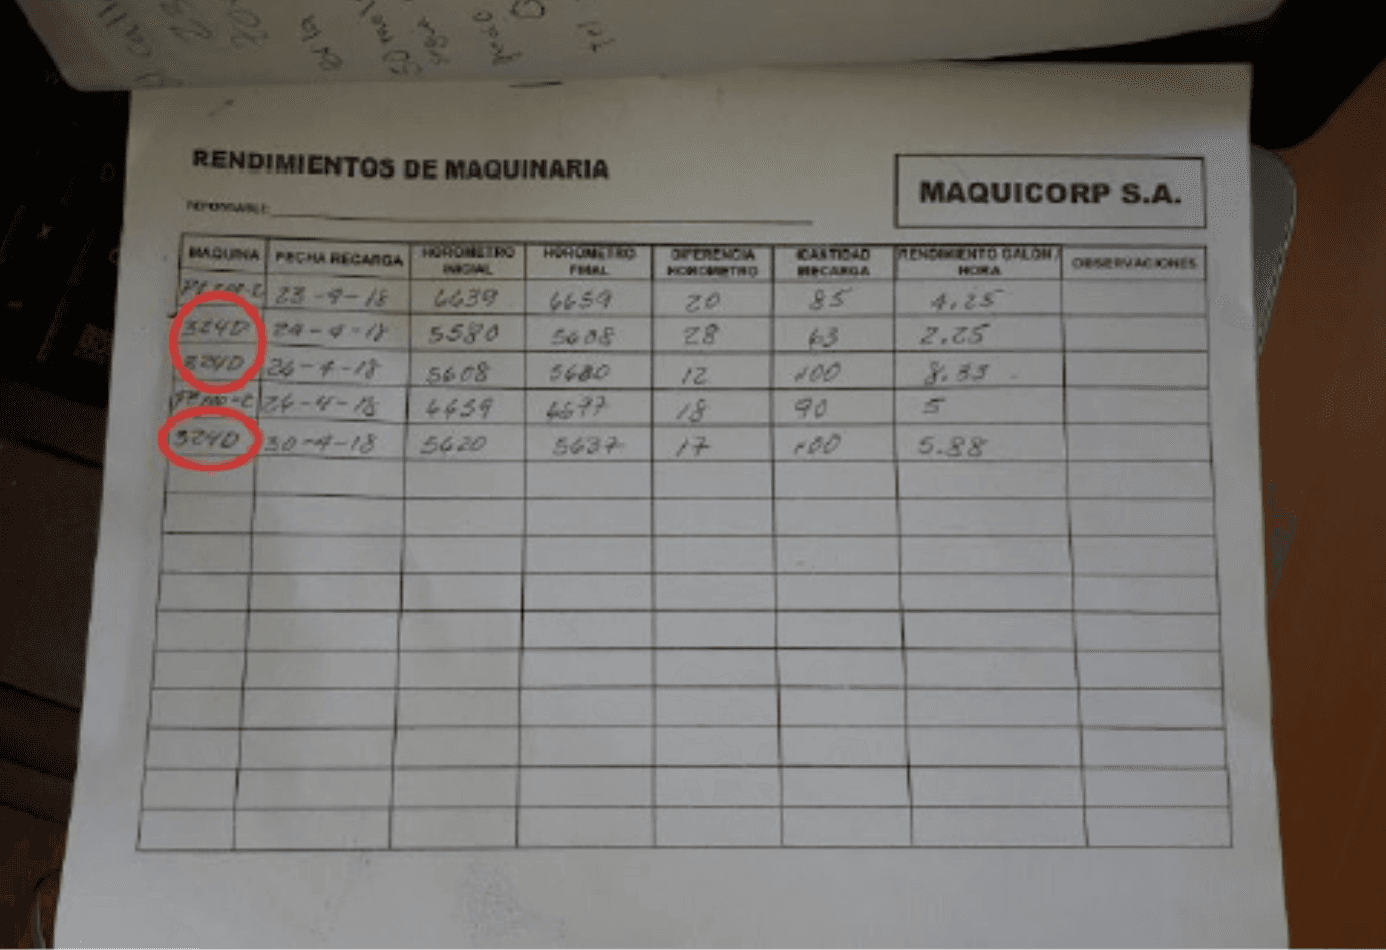 RENDIMIENTOS DE MAQUINARIA
MAQUICORP S.A.
RESPONSABLE:
MAQUINA FECHA RECARGA HOROMETRO INICIAL HOROMETRO FINAL DIFERENCIA HOROMETRO CANTIDAD RECARGA RENDIMIENTO GALON / HORA OBSERVACIONES
23-4-18 6639 6659 20 85 4.25
324D 24-4-18 5580 5608 28 63 2.25
324D 26-4-18 5608 12 100 8.33
26-4-18 6659 6677 18 90 5
324D 30-4-18 5620 5637 17 100 5.88